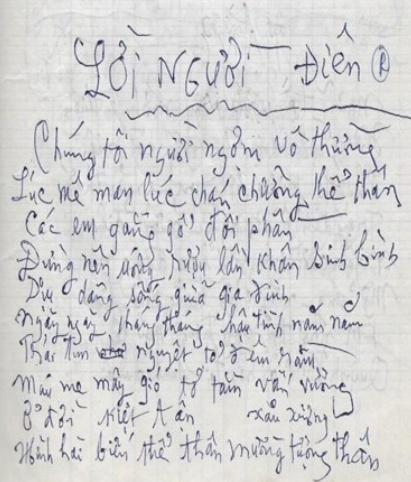 LỜI NGƯỜI ĐIÊN
Chúng tôi người ngợm vô thường
Lúc mê man lúc chán chường thế thân
Các em gắng gỏi đôi phần
Đừng nên uống rượu lần khân bình
Dịu dàng sống giữa gia đình
Ngày ngày tháng tháng hậu tình năm năm
Trái tim nguyệt tơ đêm rằm
Mưa me mây gió tơ tằm vấn vương
Ở đời kiệt tận xấu xương
Hình hài biến thể thân mường tượng thần